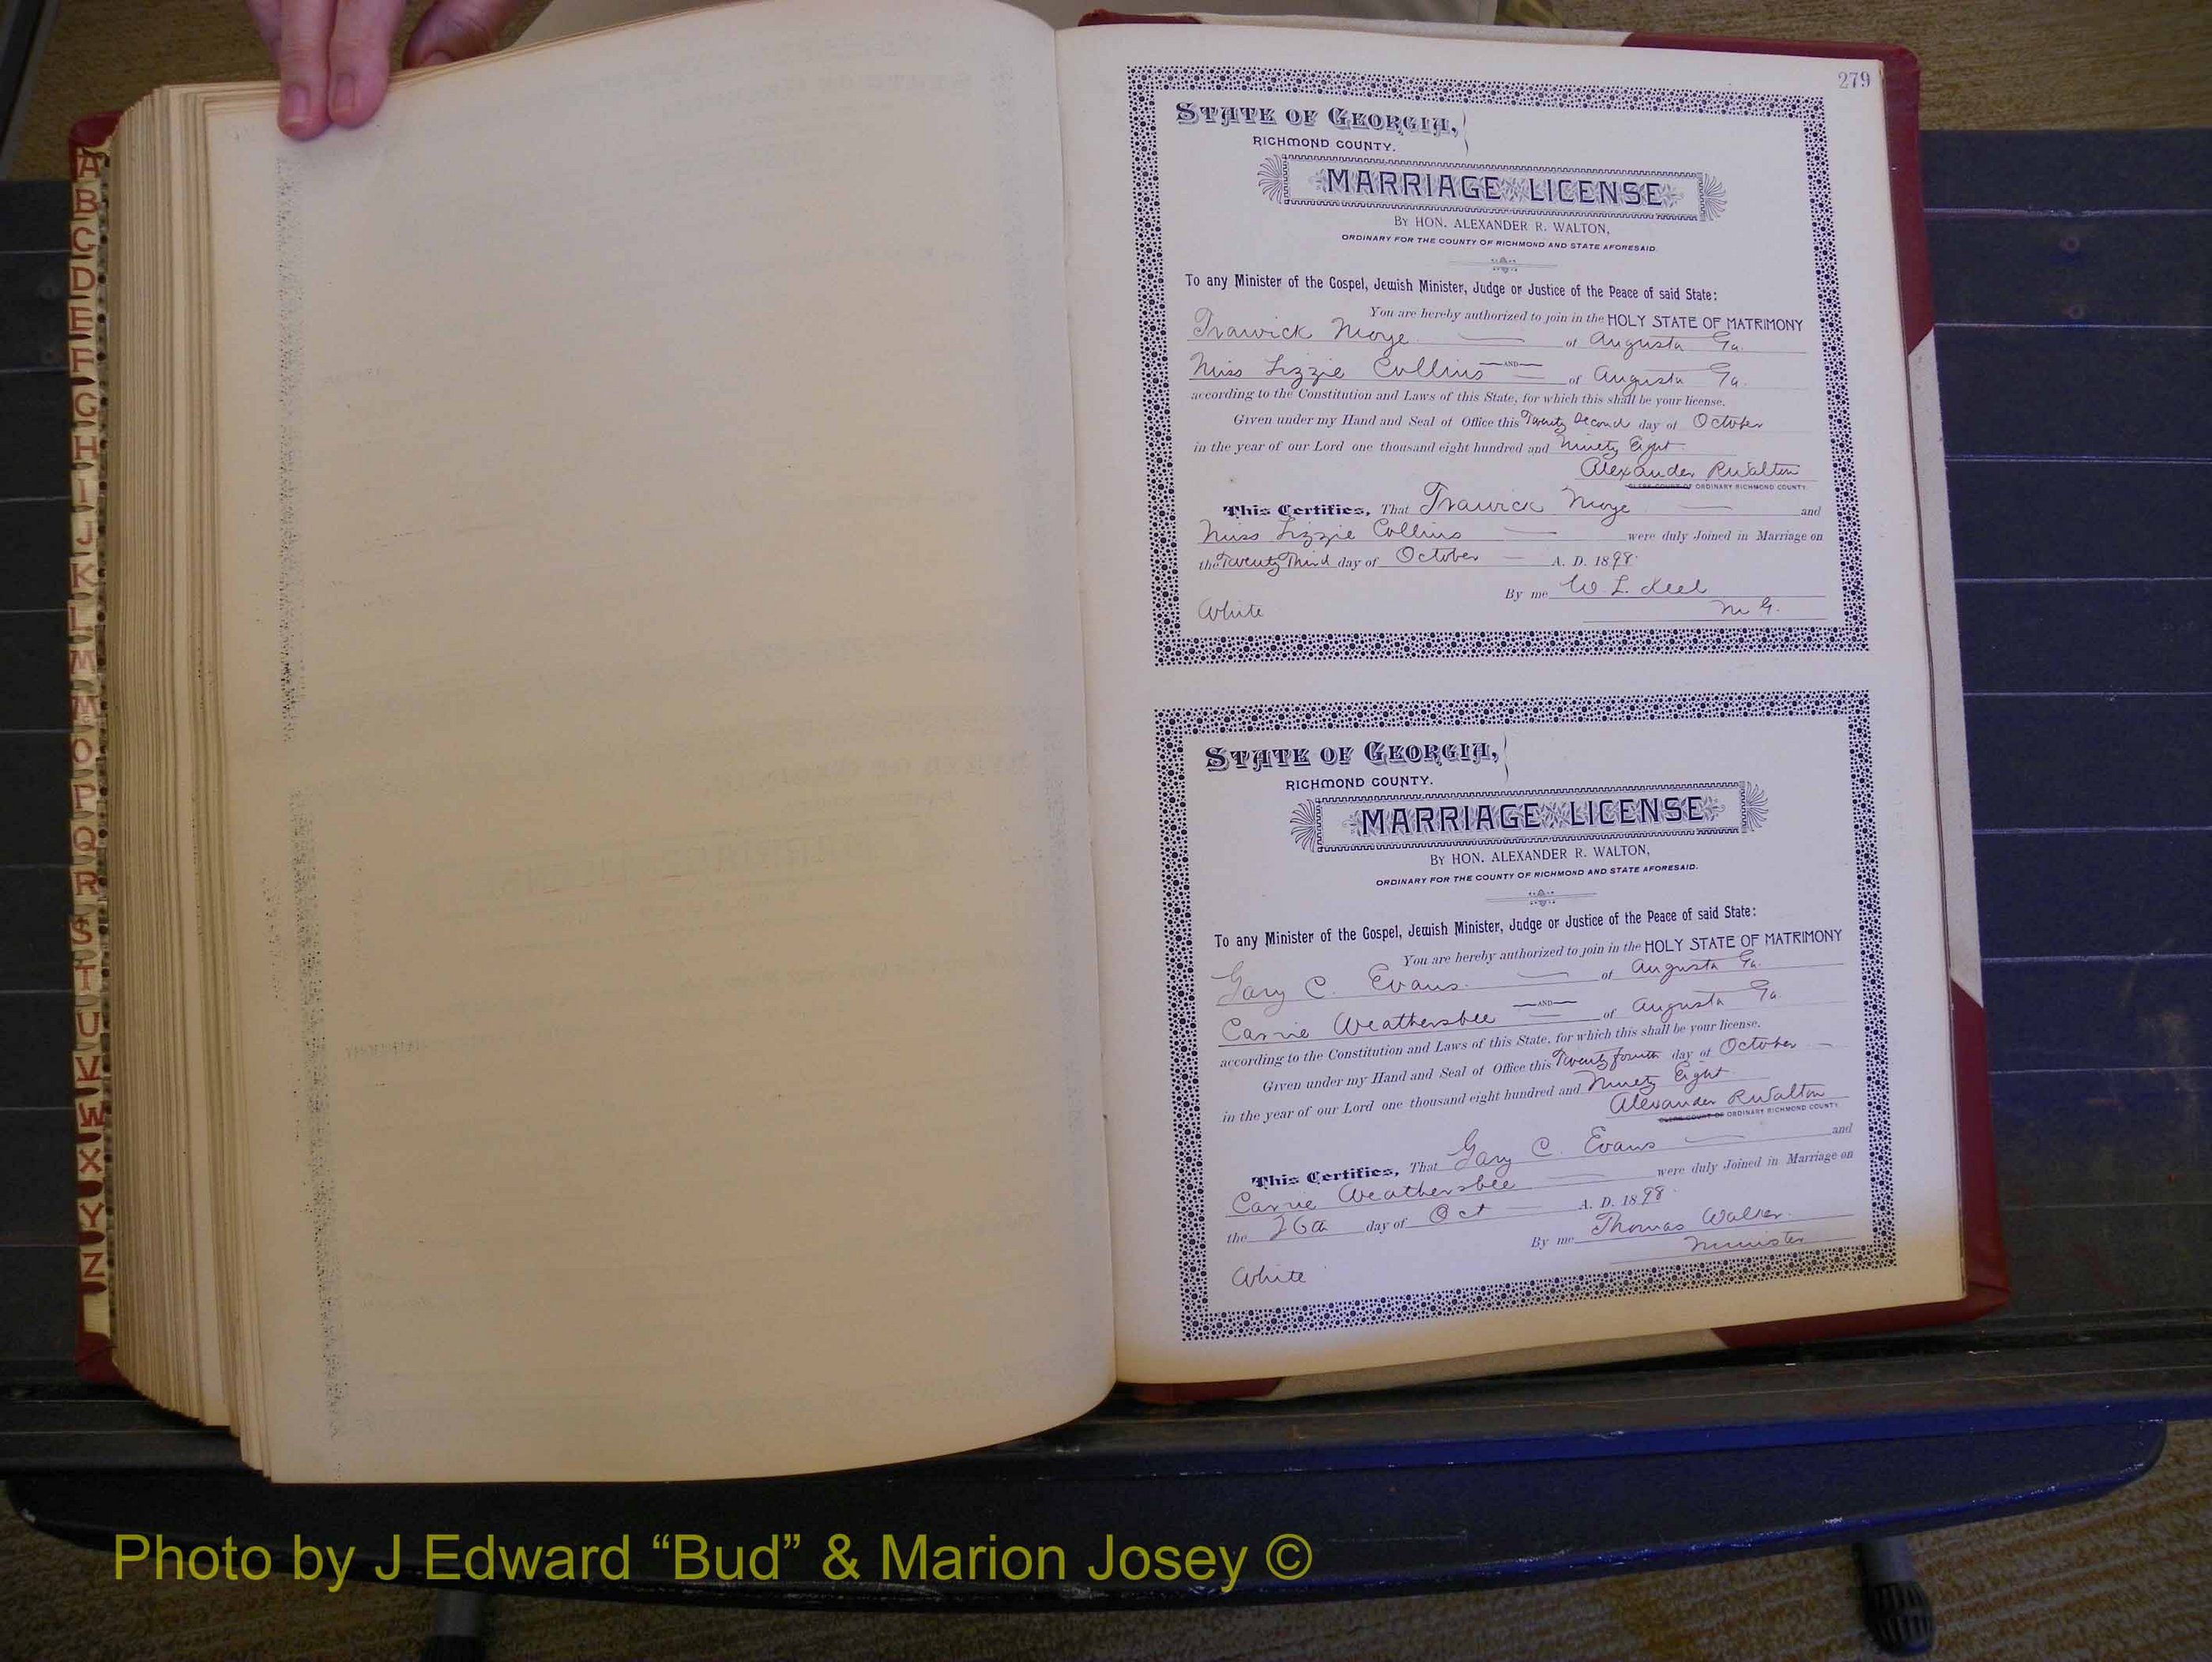 A
B
C
D
E
F
G
H
I
J
K
L
M
Mc
O
P
Q
R
S
T
U
V
W
X
Y
Z
279
STATE OF GEORGIA,
RICHMOND COUNTY.
MARRIAGE LICENSE
BY HON. ALEXANDER R. WALTON,
ORDINARY FOR THE COUNTY OF RICHMOND AND STATE AFORESAID.
To any Minister of the Gospel, Jewish Minister, Judge or Justice of the Peace of said State:
You are hereby authorized to join in the HOLY STATE OF MATRIMONY
Trawick Moye of Augusta Ga.
AND
Miss Lizzie Collins of Augusta Ga.
according to the Constitution and Laws of this State, for which this shall be your license.
Given under my Hand and Seal of Office this Twenty Second day of October
in the year of our Lord one thousand eight hundred and Ninety Eight
Alexander R Walton
CLERK COURT OF ORDINARY RICHMOND COUNTY.
This Certifies, That Trawick Moye and
Miss Lizzie Collins were duly Joined in Marriage on
the Twenty Third day of October A. D. 1898.
By me W. L. Keel
White M G.
STATE OF GEORGIA,
RICHMOND COUNTY.
MARRIAGE LICENSE
BY HON. ALEXANDER R. WALTON,
ORDINARY FOR THE COUNTY OF RICHMOND AND STATE AFORESAID.
To any Minister of the Gospel, Jewish Minister, Judge or Justice of the Peace of said State:
You are hereby authorized to join in the HOLY STATE OF MATRIMONY
Gary C. Evans of Augusta Ga.
AND
Carrie Weathersbee of Augusta Ga.
according to the Constitution and Laws of this State, for which this shall be your license.
Given under my Hand and Seal of Office this Twenty fourth day of October
in the year of our Lord one thousand eight hundred and Ninety Eight
Alexander R Walton
CLERK COURT OF ORDINARY RICHMOND COUNTY.
This Certifies, That Gary C. Evans and
Carrie Weathersbee were duly Joined in Marriage on
the 26th day of Oct A. D. 1898.
By me Thomas Walker.
Minister
White
Photo by J Edward “Bud” & Marion Josey ©